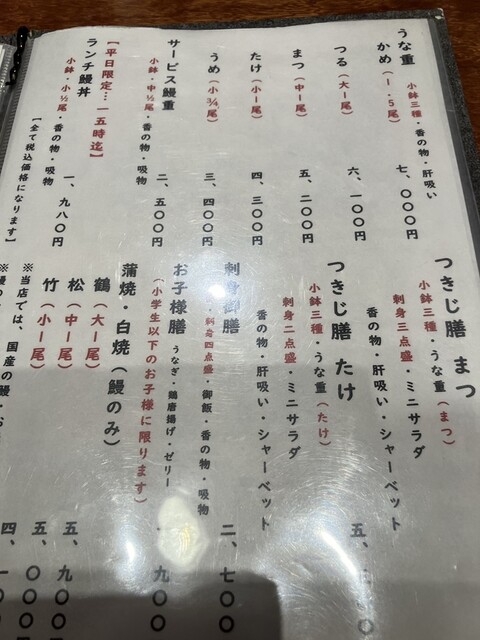 うな重
小鉢三種・香の物・肝吸い
かめ（一．５尾）　七、〇〇〇円
つる（大一尾）　六、一〇〇円
まつ（中一尾）　五、二〇〇円
たけ（小一尾）　四、三〇〇円
うめ（小¾尾）　三、四〇〇円
サービス鰻重　二、五〇〇円
小鉢・中½尾・香の物・吸物
【平日限定…一五時迄】
ランチ鰻丼　一、九八〇円
小鉢・小½尾・香の物・吸物
【全て税込価格になります】
つきじ膳　まつ
小鉢三種・うな重（まつ）
刺身三点盛・ミニサラダ
香の物・肝吸い・シャーベット
つきじ膳　たけ　五、
小鉢三種・うな重（たけ）
刺身二点盛・ミニサラダ
香の物・肝吸い・シャーベット
刺身御膳　二、七〇〇
刺身四点盛・御飯・香の物・吸物
お子様膳　うなぎ・鶏唐揚げ・ゼリー　九〇〇
（小学生以下のお子様に限ります）
蒲焼・白焼（鰻のみ）
鶴（大一尾）　五、九〇〇
松（中一尾）　五、〇〇〇
竹（小一尾）　四、一〇〇
※当店では、国産の鰻・お